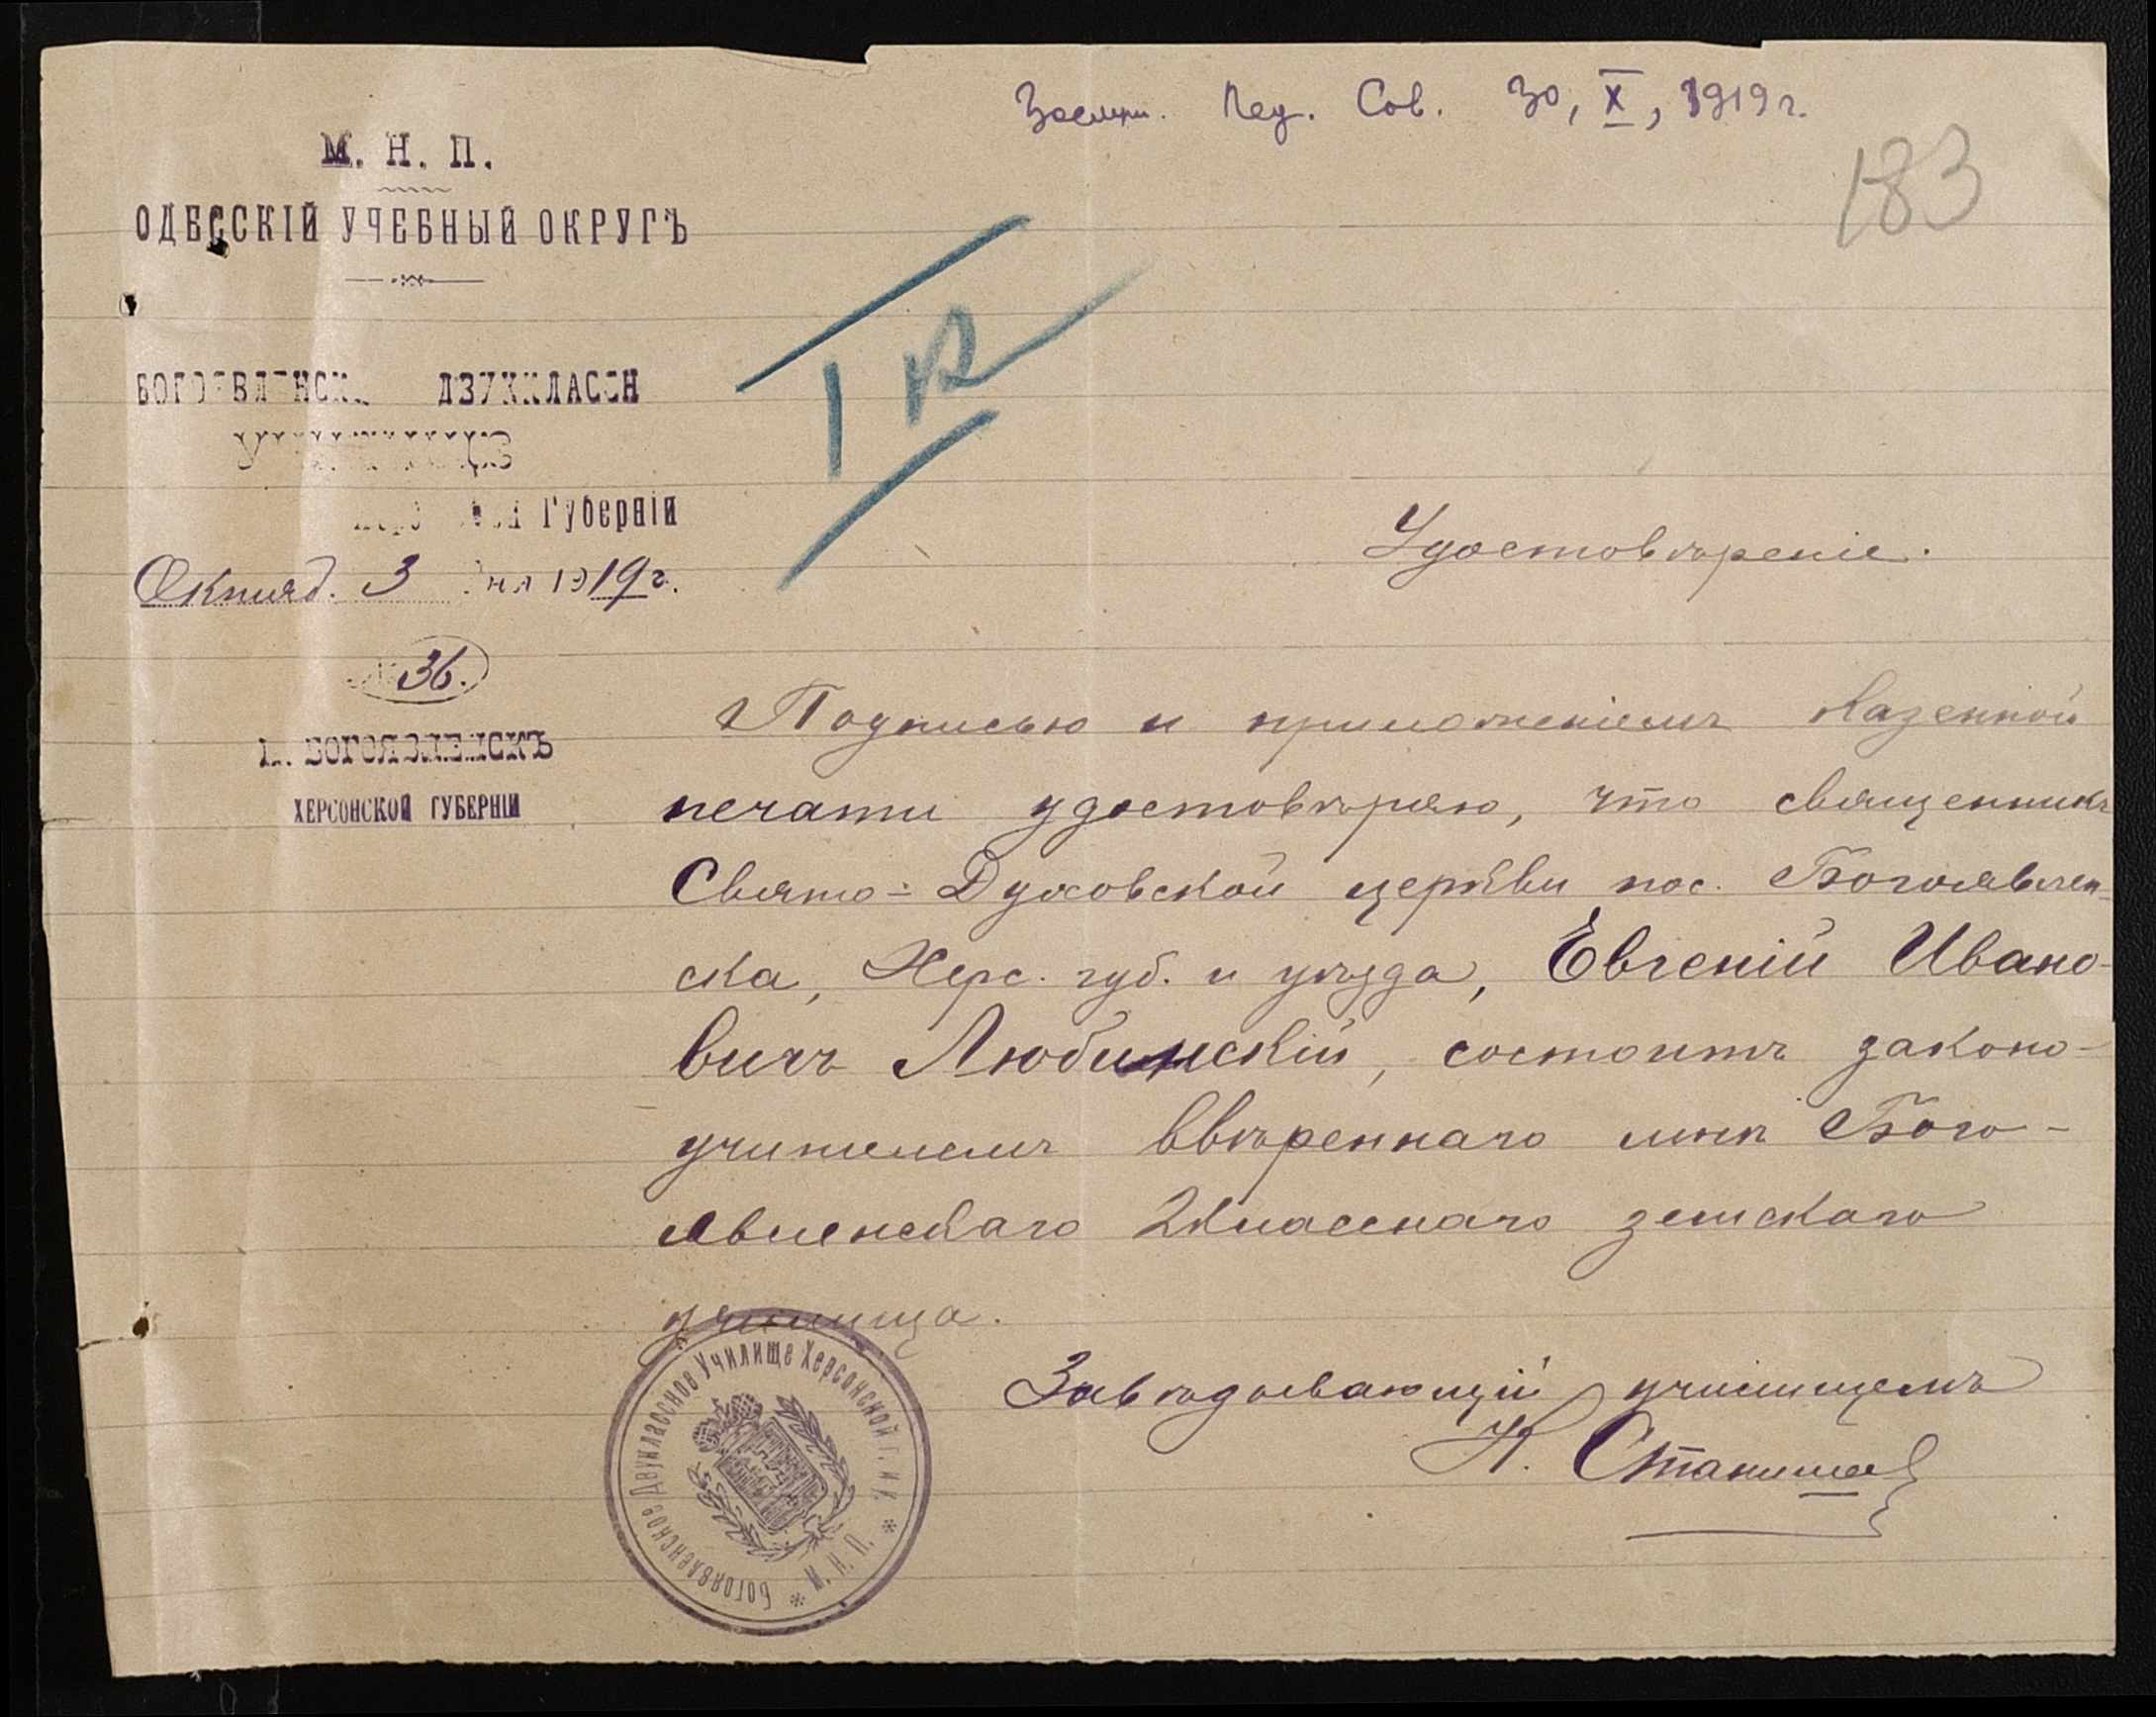 Пед. Сов. 30, X, 1919 г.
183
М. Н. П.
ОДЕССКІЙ УЧЕБНЫЙ ОКРУГЪ
I
Губерніи
Октяб. 3 дня 1919 г.
№ 36.
П. БОГОЯВЛЕНСКЪ
ХЕРСОНСКОЙ ГУБЕРНІИ
Удостовѣреніе.
Подписью и приложеніемъ казенной
печати удостовѣряю, что священникъ
Свято-Духовской церкви пос. Богоявлен-
ска, Херс. губ. и уѣзда, Евгеній Ивано-
вичъ Любинскій, состоитъ законо-
учителемъ ввѣреннаго мнѣ Бого-
явленскаго 2классного земскаго
училища.
Завѣдывающій училищемъ
Богоявленское Двуклассное Училище Херсонской г. и у. * М. Н. П. *